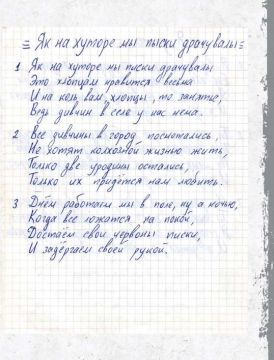 = Як на хуторе мы пыски драчувалы =
1 Як на хуторе мы писки драчувалы
Это хлопцам нравится весьма
И на кой вам, хлопцы, то занятие,
Ведь дивчин в селе у нас нема.
2 Все дивчины в город посмотались,
Не хотят колхозной жизнью жить,
Только две уродины остались,
Только их придётся нам любить.
3 Днём работаем мы в поле, ну а ночью,
Когда все ложатся на покой,
Достаём свои червоны писки,
И задёргаем своей рукой.